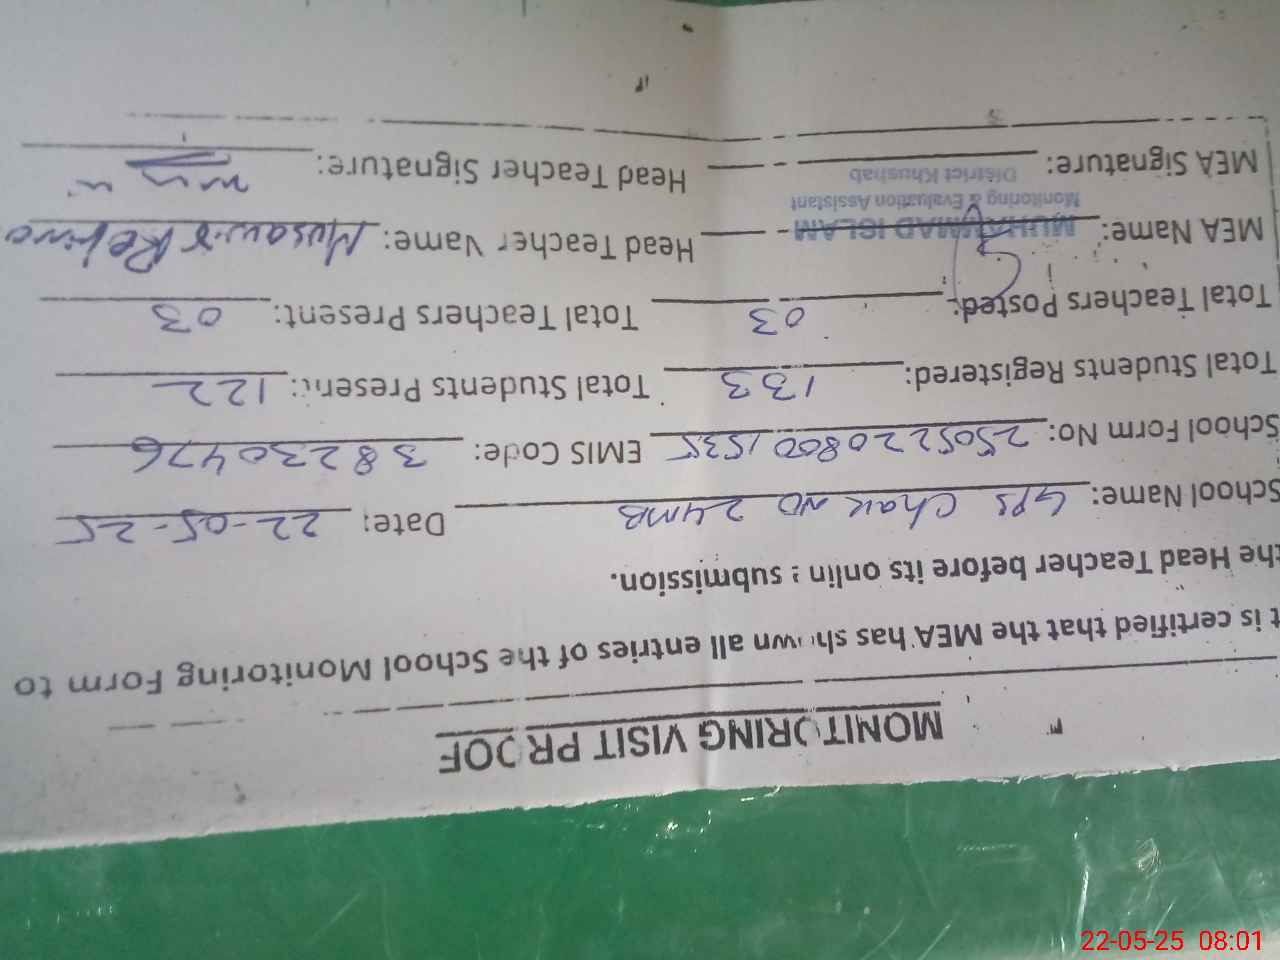 MONITORING VISIT PROOF
t is certified that the MEA has shown all entries of the School Monitoring Form to
the Head Teacher before its online submission.
School Name: GPS Chak NO 24MB Date: 22-05-25
School Form No: 25052208001535 EMIS Code: 38230476
Total Students Registered: 133 Total Students Present: 122
Total Teachers Posted: 03 Total Teachers Present: 03
MEA Name: MUHAMMAD ISLAM Head Teacher Name: Musawir
Monitoring & Evaluation Assistant
District Khushab
MEA Signature: Head Teacher Signature:
22-05-25 08:01